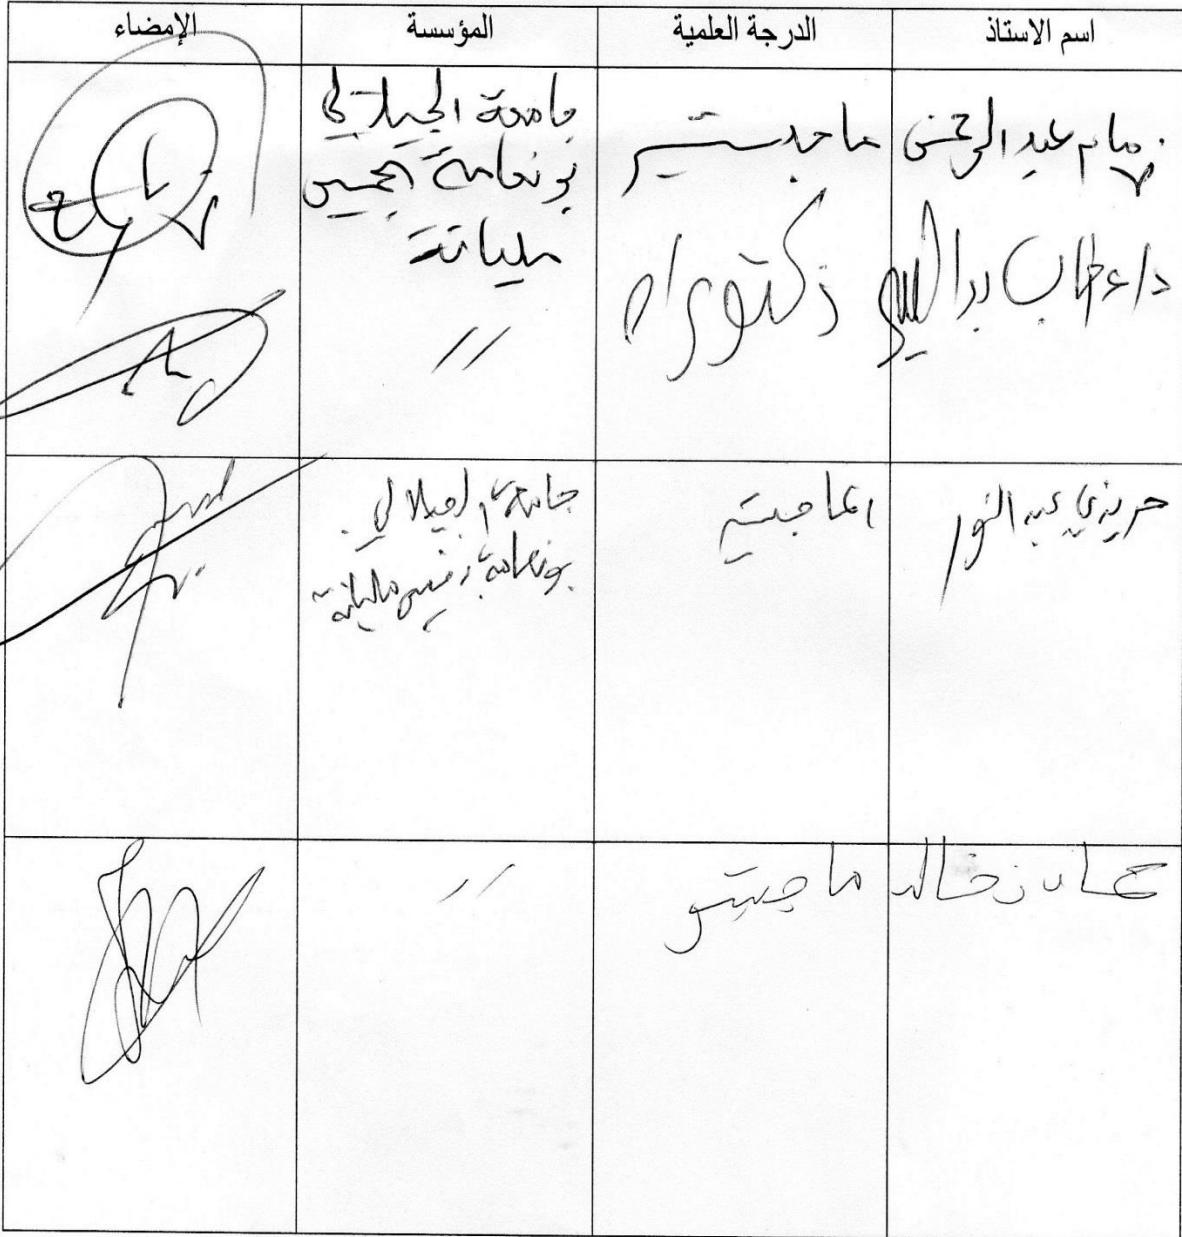 اسم الاستاذ الدرجة العلمية المؤسسة الإمضاء
زمام عبد الرحمن ماجستير جامعة الجيلالي
بونعامة خميس
مليانة
دكتوراه //
حريزي عبد النور الماجستير جامعة الجيلالي
بونعامة خميس مليانة
خالد ماجستير //